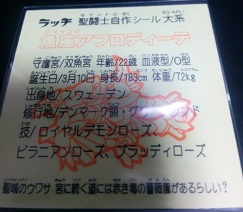 ラッチ 聖闘士自作シール大系
魚座アフロディーテ
守護宮/双魚宮 年齢/22歳 血液型/O型
誕生日/3月10日 身長/183cm 体重/72kg
出身地/スウェーデン
修行地/デンマーク領・グリーンランド
技/ロイヤルデモンローズ、
ピラニアンローズ、ブラッディローズ
聖域のウワサ 宮に続く道には赤き毒の薔薇園があるらしい?